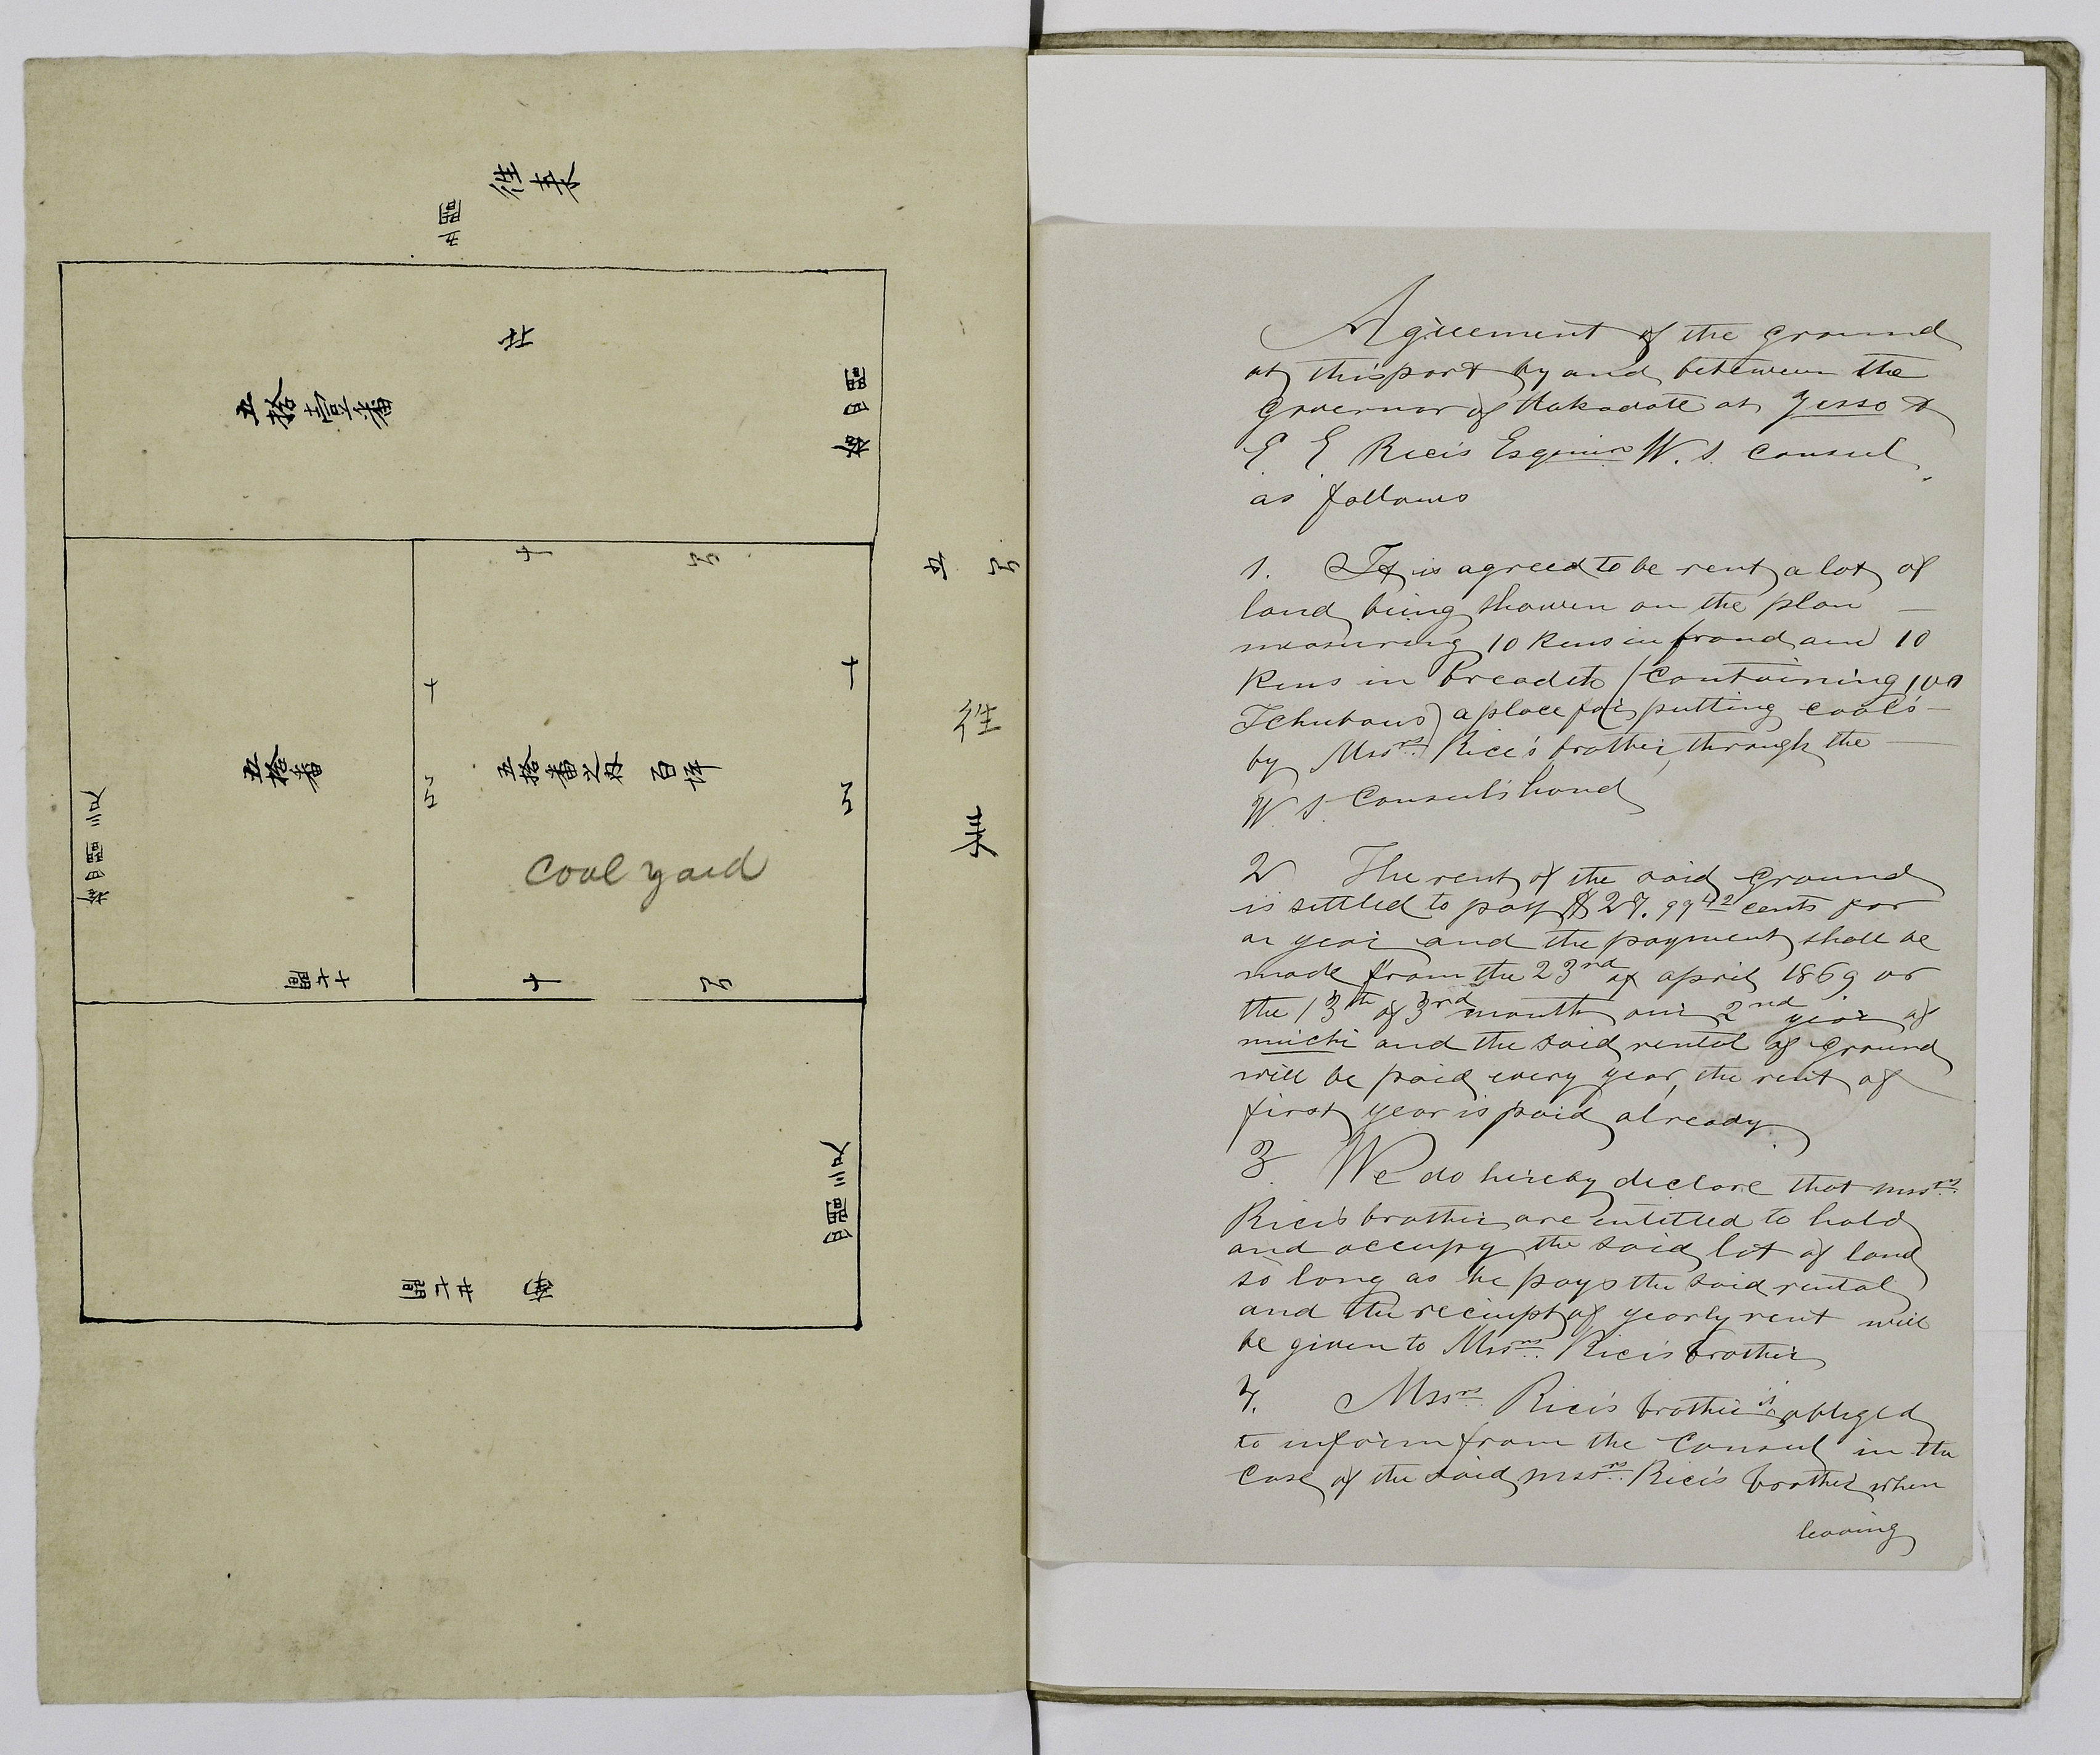 往来
五間
五拾壱番
廿
拾四間
五拾番
五拾番之内 百坪
十
十
十
十
間
往
来
十六間
Coal yard
廿七間
Agreement of the ground
at this port by and between the
Governor of Hakodate at Yesso &
E. E. Rice's Esquire W. S. Consul
as follows
1. It is agreed to be rent a lot of
land being showen on the plan —
measuring 10 Kens in frond and 10
Kens in breadth (Containing 100
Tchubous) a place for putting coal's —
by Mssrs. Rice's brother, through the —
W. S. Consul's hand
2 The rent of the said ground
is settled to pay $27.99 42 cents for
a year and the payment shall be
made from the 23rd of april 1869 or
the 13th of 3rd month our 2nd year of
miichi and the said rental of ground
will be paid every year, the rent of
first year is paid already.
3. We do hereby declare that mssrs.
Rice's brother are entitled to hold
and occupy the said lot of land
so long as he pays the said rental
and the reciept of yearly rent will
be given to Mssrs. Rice's brother
4. Mssrs. Rice's brother is obliged
to inform from the Consul in the
Case of the said mssrs. Rice's brother when
leaving